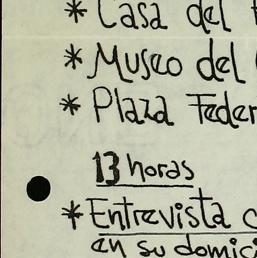 * Casa del
* Museo del
* Plaza Feder
13 horas
* Entrevista c
en su domici